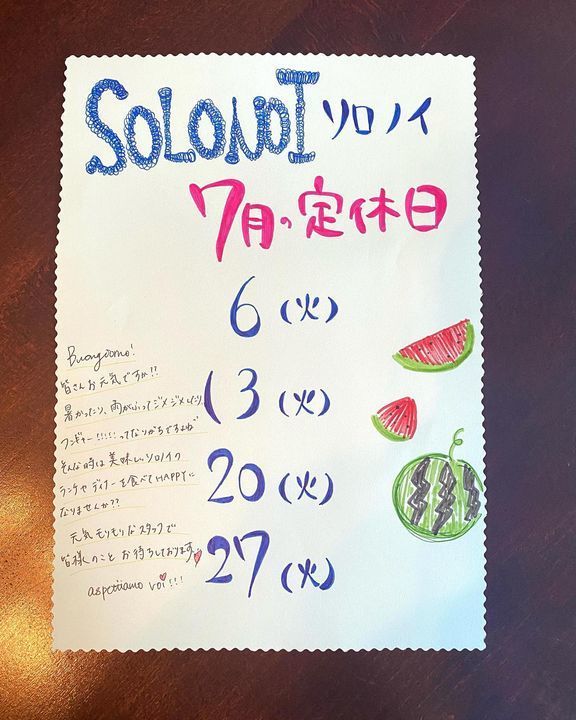 SOLONOI ソロノイ
7月の定休日
6 (火)
13 (火)
20 (火)
27 (火)
Buongiorno!
皆さんお元気ですか!!
暑かったり、雨がふってジメジメしたり
フンギャー!!!!!ってなりがちですよね
そんな時は美味しいソロノイの
ランチやディナーを食べてHAPPYに
なりませんか??
元気モリモリなスタッフで
皆様のことお待ちしております♥
aspettiamo voi!!!